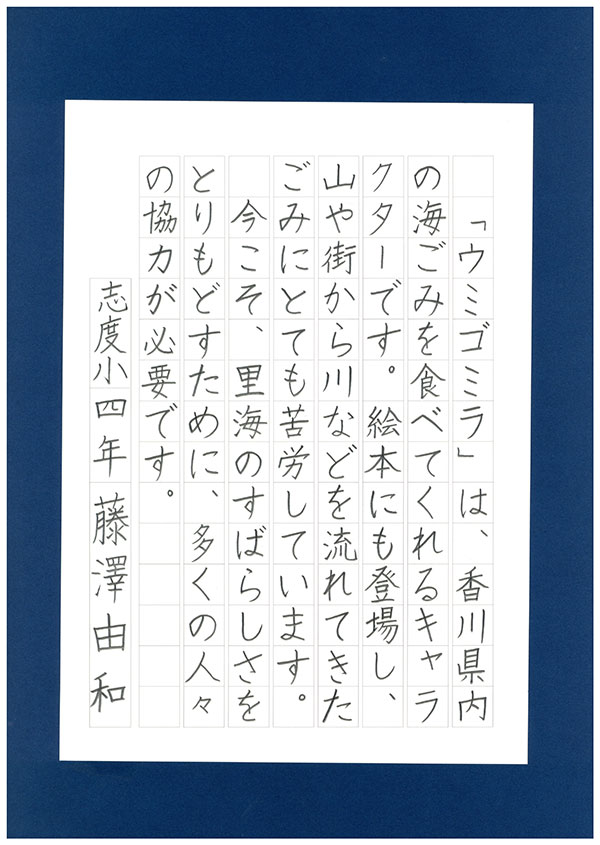 「ウミゴミラ」は、香川県内
の海ごみを食べてくれるキャラ
クターです。絵本にも登場し、
山や街から川などを流れてきた
ごみにとても苦労しています。
今こそ、里海のすばらしさを
とりもどすために、多くの人々
の協力が必要です。
志度小四年 藤澤由和